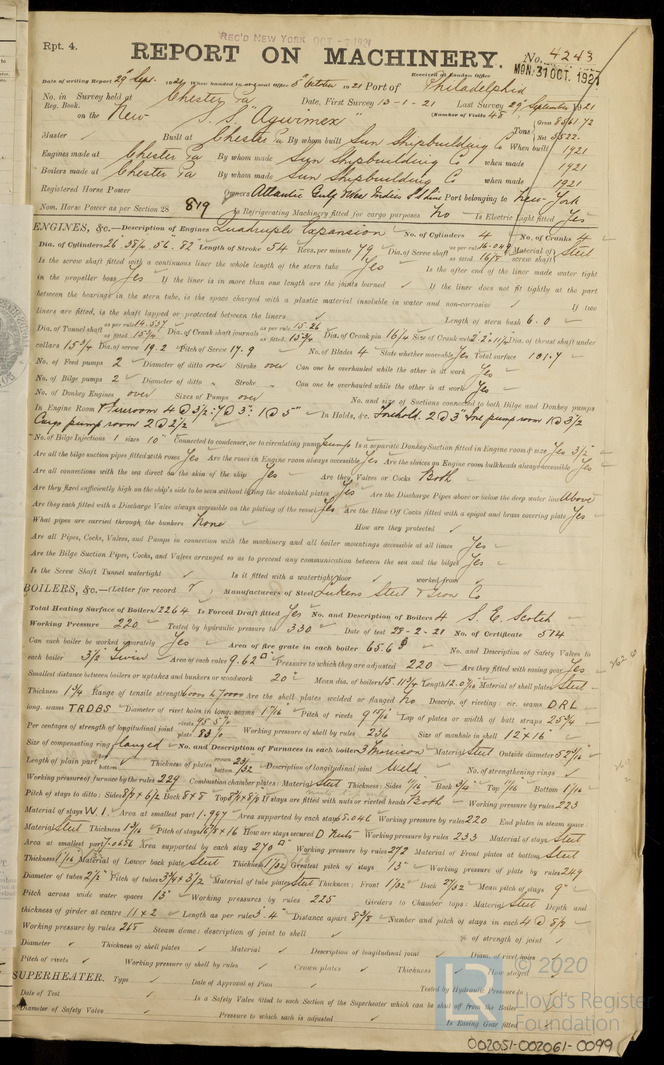 REC'D NEW YORK OCT - 7 1921
Rpt. 4.
REPORT ON MACHINERY.
No. 4243
MON. 31 OCT. 1921
Received at London Office
Date of writing Report 29th Sept. 1921 When handed in at Local Office 5th October 1921 Port of Philadelphia
No. in Survey held at Chester Pa Date, First Survey 13-1-21 Last Survey 29th September 1921
Reg. Book.
(Number of Visits 48
on the New S.S. "Agwimex" Tons Gross 8561.72 Net 5522.
Master Built at Chester Pa By whom built Sun Shipbuilding Co When built 1921
Engines made at Chester Pa By whom made Sun Shipbuilding Co when made 1921
Boilers made at Chester Pa By whom made Sun Shipbuilding Co when made 1921
Registered Horse Power Owners Atlantic Gulf West Indies S S Line Port belonging to New York
Nom. Horse Power as per Section 28 819 Is Refrigerating Machinery fitted for cargo purposes No Is Electric Light fitted Yes
ENGINES, &c.—Description of Engines Quadruple Expansion No. of Cylinders 4 No. of Cranks 4
Dia. of Cylinders Length of Stroke 54 Revs. per minute 79 Dia. of Screw shaft as per rule 16.049 as fitted 16 7/8 Material of screw shaft Steel
Is the screw shaft fitted with a continuous liner the whole length of the stern tube Yes Is the after end of the liner made water tight
in the propeller boss Yes If the liner is in more than one length are the joints burned If the liner does not fit tightly at the part
between the bearings in the stern tube, is the space charged with a plastic material insoluble in water and non-corrosive If two
liners are fitted, is the shaft lapped or protected between the liners Length of stern bush 6.0
Dia. of Tunnel shaft as per rule 14.537 as fitted 15 3/4 Dia. of Crank shaft journals as per rule 15.26 as fitted 15 3/4 Dia. of Crank pin 16 1/4 Size of Crank webs Dia. of thrust shaft under
collars 15 3/4 Dia. of screw 19.2 Pitch of Screw 17.9 No. of Blades 4 State whether moveable Yes Total surface 101.7
No. of Feed pumps 2 Diameter of ditto over Stroke over Can one be overhauled while the other is at work Yes
No. of Bilge pumps 2 Diameter of ditto " Stroke " Can one be overhauled while the other is at work Yes
No. of Donkey Engines over Sizes of Pumps over No. and size of Suctions connected to both Bilge and Donkey pumps
In Engine Room & Fireroom 4 @ 3 1/2 : 7 @ 3" : 1 @ 5" In Holds, &c. Forehold. 2 @ 3" Fore pump room 1 @ 3 1/2
Cargo pump room 2 @ 2 1/2
No. of Bilge Injections 1 sizes 10" Connected to condenser, or to circulating pump pump Is a separate Donkey Suction fitted in Engine room & size Yes 3 1/2
Are all the bilge suction pipes fitted with roses Yes Are the roses in Engine room always accessible Yes Are the sluices on Engine room bulkheads always accessible Yes
Are all connections with the sea direct on the skin of the ship Yes Are they Valves or Cocks Both
Are they fixed sufficiently high on the ship's side to be seen without lifting the stokehold plates Yes Are the Discharge Pipes above or below the deep water line Above
Are they each fitted with a Discharge Valve always accessible on the plating of the vessel Yes Are the Blow Off Cocks fitted with a spigot and brass covering plate Yes
What pipes are carried through the bunkers None How are they protected
Are all Pipes, Cocks, Valves, and Pumps in connection with the machinery and all boiler mountings accessible at all times Yes
Are the Bilge Suction Pipes, Cocks, and Valves arranged so as to prevent any communication between the sea and the bilges Yes
Is the Screw Shaft Tunnel watertight Is it fitted with a watertight door worked from
BOILERS, &c.—(Letter for record r) Manufacturers of Steel Lukens Steel & Iron Co
Total Heating Surface of Boilers Is Forced Draft fitted Yes No. and Description of Boilers 4 S. E. Scotch
Working Pressure 220 Tested by hydraulic pressure to 330 Date of test 28-2-21 No. of Certificate 514
Can each boiler be worked separately Yes Area of fire grate in each boiler 65.6 No. and Description of Safety Valves to
each boiler 3 1/2 Twin Area of each valve 9.62 Pressure to which they are adjusted 220 Are they fitted with easing gear Yes
Smallest distance between boilers or uptakes and bunkers or woodwork 20" Mean dia. of boilers Length Material of shell plates Steel
Thickness Range of tensile strength Are the shell plates welded or flanged No Descrip. of riveting: cir. seams D.R.L.
long. seams T.R.D.B.S. Diameter of rivet holes in long. seams 1 7/16 Pitch of rivets Lap of plates or width of butt straps 25 3/4
Per centages of strength of longitudinal joint rivets plate Working pressure of shell by rules 236 Size of manhole in shell 12 x 16
Size of compensating ring flanged No. and Description of Furnaces in each boiler 3 Morison Material Steel Outside diameter
Length of plain part top bottom Thickness of plates crown bottom Description of longitudinal joint Weld No. of strengthening rings
Working pressure of furnace by the rules 229 Combustion chamber plates: Material Steel Thickness: Sides Back Top Bottom
Pitch of stays to ditto: Sides Back 8 x 8 Top If stays are fitted with nuts or riveted heads Both Working pressure by rules 223
Material of stays W.I. Area at smallest part 1.997 Area supported by each stay Working pressure by rules 220 End plates in steam space
Material Steel Thickness Pitch of stays How are stays secured D. Nuts Working pressure by rules 233 Material of stays Steel
Area at smallest part Area supported by each stay 270 Working pressure by rules Material of Front plates at bottom Steel
Thickness Material of Lower back plate Steel Thickness Greatest pitch of stays 13" Working pressure of plate by rules 249
Diameter of tubes Pitch of tubes 3 3/4 x 3 1/2 Material of tube plates Steel Thickness: Front Back Mean pitch of stays 9"
Pitch across wide water spaces 15" Working pressures by rules 225 Girders to Chamber tops: Material Steel Depth and
thickness of girder at centre 11 x 2 Length as per rule 3.4 Distance apart Number and pitch of stays in each
Working pressure by rules 265 Steam dome: description of joint to shell % of strength of joint
Diameter Thickness of shell plates Material Description of longitudinal joint Diam. of rivet holes
Pitch of rivets Working pressure of shell by rules Crown plates Thickness How stayed
SUPERHEATER. Type Date of Approval of Plan Tested by Hydraulic Pressure to
Date of Test Is a Safety Valve fitted to each Section of the Superheater which can be shut off from the Boiler
Diameter of Safety Valve Pressure to which each is adjusted Is Easing Gear fitted
© 2020
Lloyd's Register
Foundation
002051-002061-0099